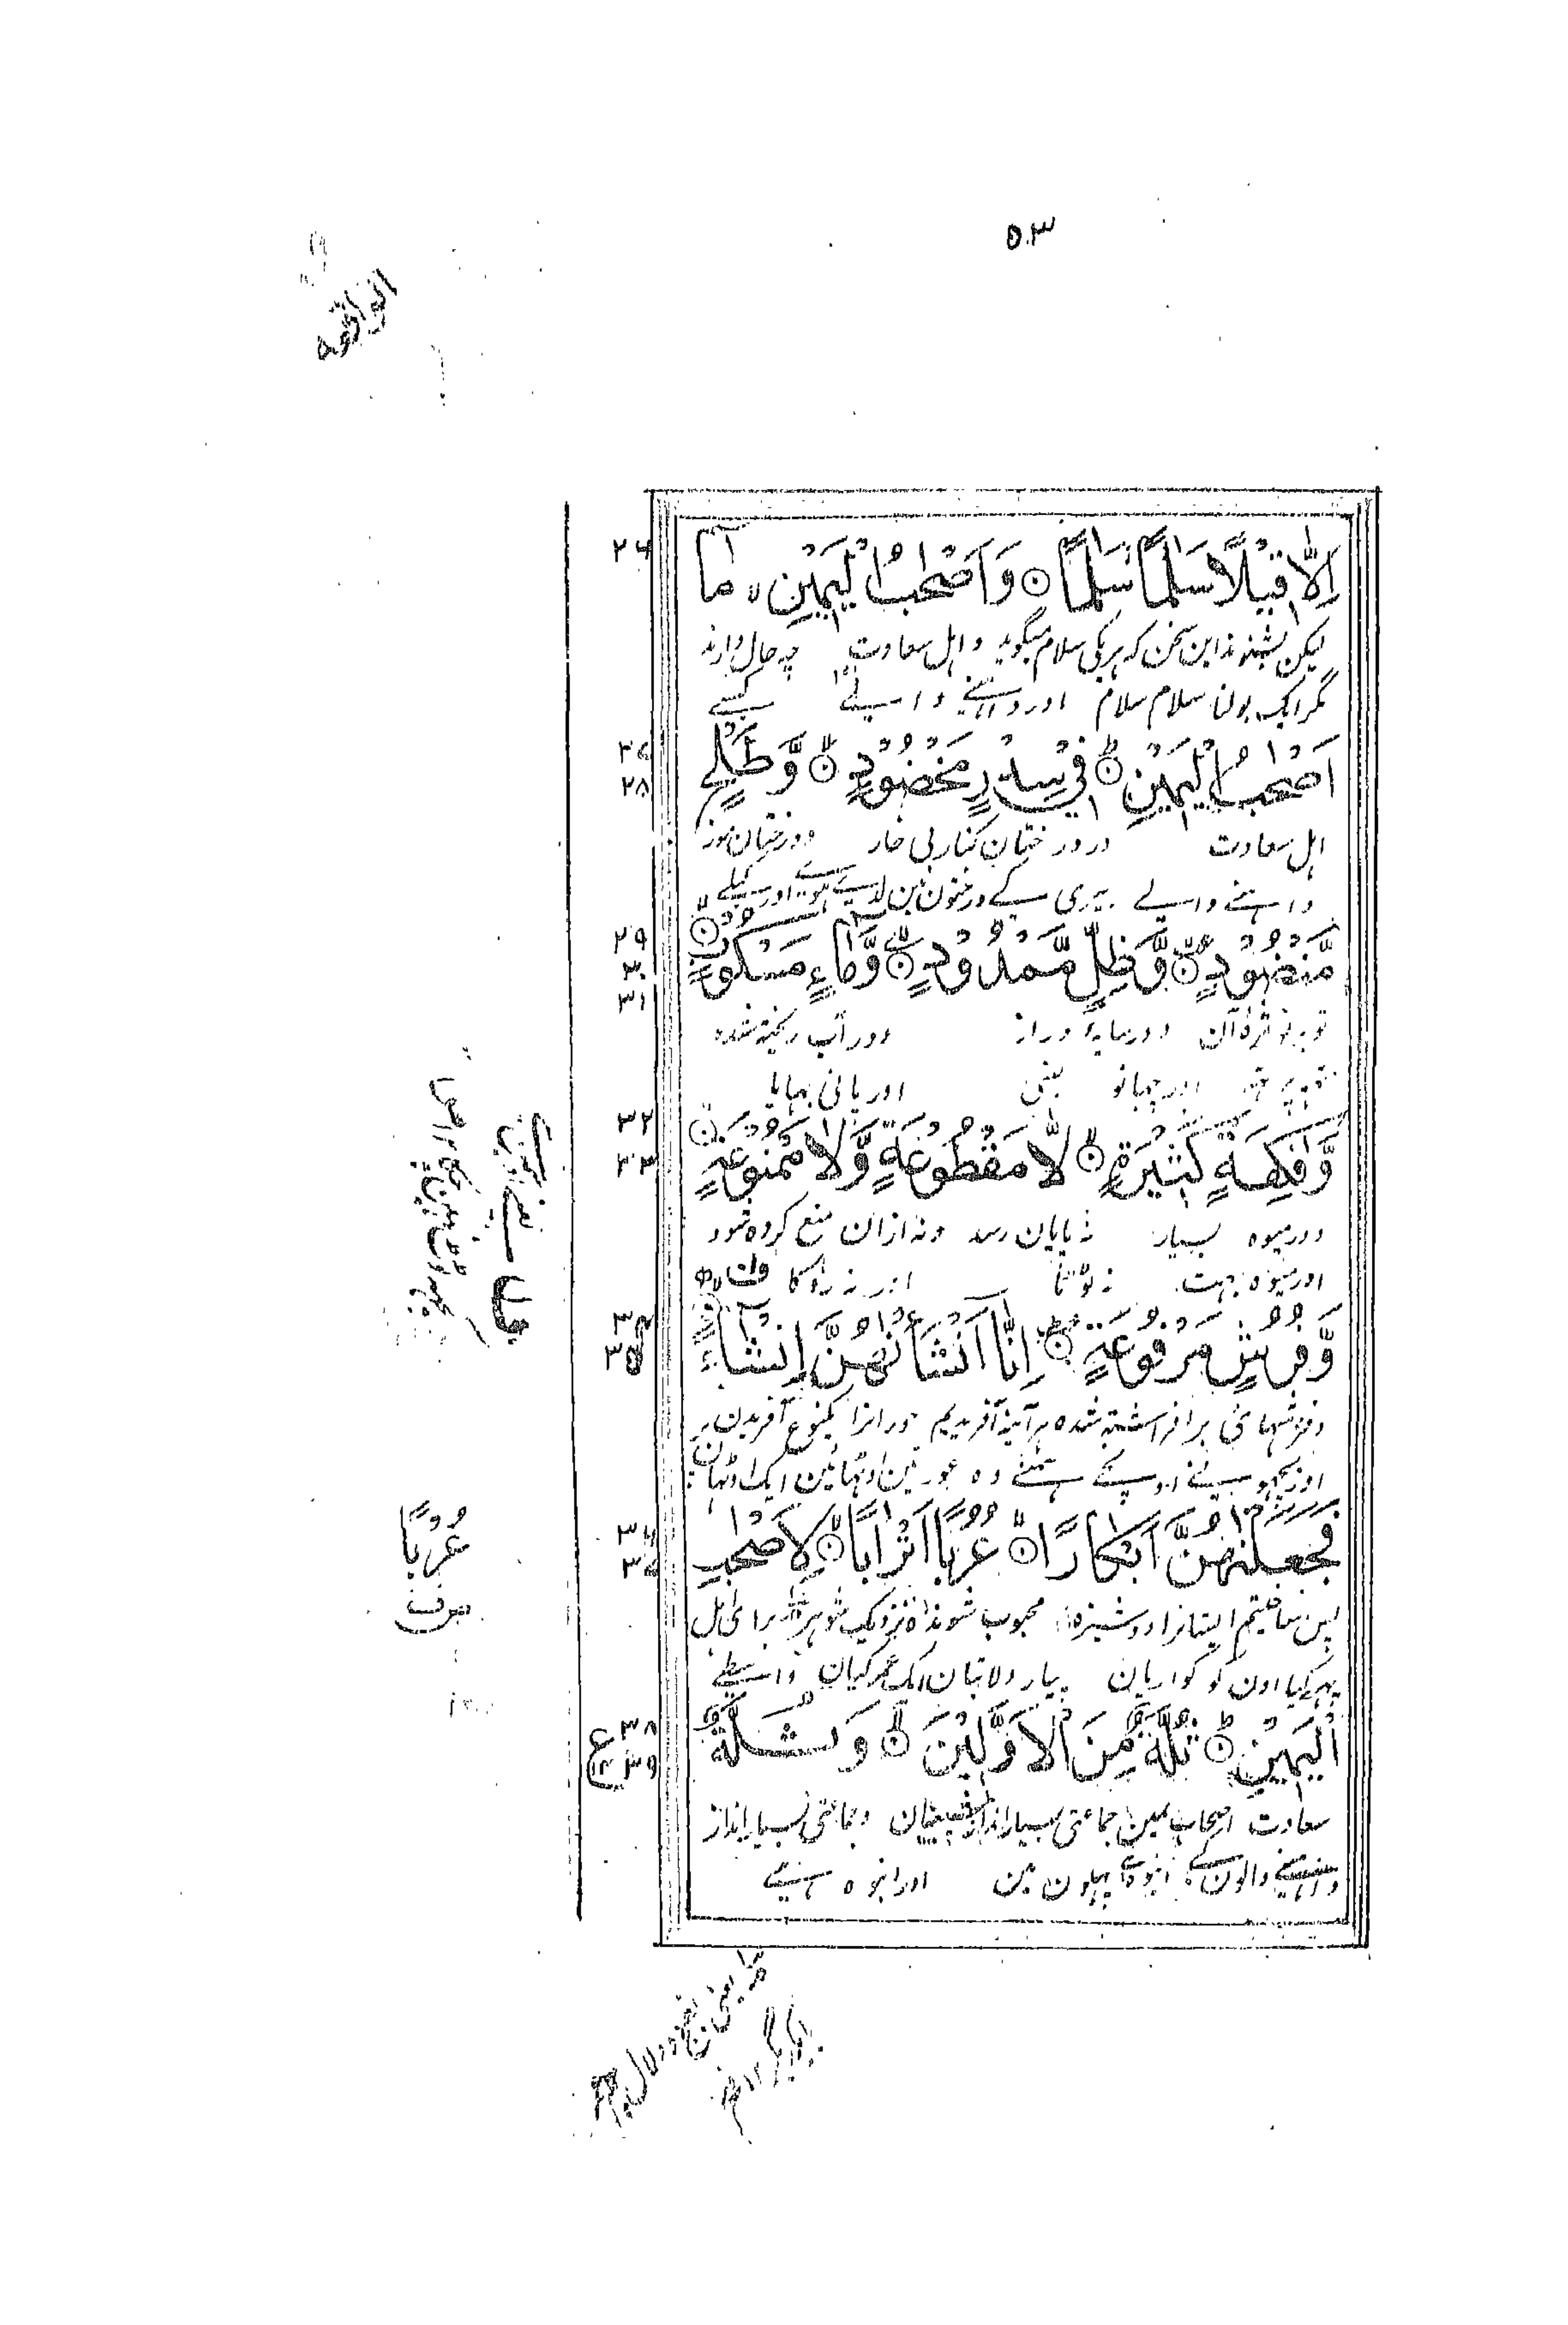 ۵۳
الواقعه
اِلَّا قِيْلًا سَلٰمًا سَلٰمًا ۞ وَاَصْحٰبُ الْيَمِيْنِ ۙ مَآ
۲۶
ليکن بشنوند اين سخن که هر يکی سلام ميگويد و اهل سعادت چه حال دارند
مگر ایک بولنا سلام سلام اور داہنے والے کیسے
اَصْحٰبُ الْيَمِيْنِ ۞ فِيْ سِدْرٍ مَّخْضُوْدٍ ۞ وَّطَلْحٍ
۲۷
۲۸
اهل سعادت در درختان کنار بی خار و درختان موز
داہنے والے بیری کے درختون مین
مَّنْضُوْدٍ ۞ وَّظِلٍّ مَّمْدُوْدٍ ۞ وَّمَآءٍ مَّسْكُوْبٍ ۞
۲۹
۳۰
۳۱
تو بر تو ثمرۀ آن و در سایۀ دراز و در آب ریخته شده
تہہ پر تہہ اور چہانو لنبی اور پانی بہایا
وَّفَاكِهَةٍ كَثِيْرَةٍ ۞ لَّا مَقْطُوْعَةٍ وَّلَا مَمْنُوْعَةٍ ۞
۳۲
۳۳
و در میوه بسیار نه بپایان رسد و نه ازان منع کرده شود
اور میوہ بہت نہ ٹوٹتا اور نہ روکا
وَّفُرُشٍ مَّرْفُوْعَةٍ ۞ اِنَّآ اَنْشَاْنٰهُنَّ اِنْشَآءً ۞
۳۴
۳۵
و فرشهای برافراشته شده هر آئینه آفریدیم حورانرا یکنوع آفریدن
اور بچھونے اونچے ہمنے وہ عورتین اوٹھائین ایک اوٹھان
فَجَعَلْنٰهُنَّ اَبْكَارًا ۞ عُرُبًا اَتْرَابًا ۞ لِاَصْحٰبِ
۳۶
۳۷
پس ساختیم ایشانرا دوشیزه محبوب شونده نزدیک شوهر برای اهل
پہر کیا اون کو کواریان پیار دلاتیان ایک عمر کیان واسطے
الْيَمِيْنِ ۞ ثُلَّةٌ مِّنَ الْاَوَّلِيْنَ ۞ وَثُلَّةٌ
۳۸
۳۹
ع
سعادت اصحاب یمین جماعتی بسیاراند از پیشینیان و جماعتی بسیاراند از
داہنے والون کے انبوہ ہے پہلون مین اور انبوہ ہے
عُرُبًا